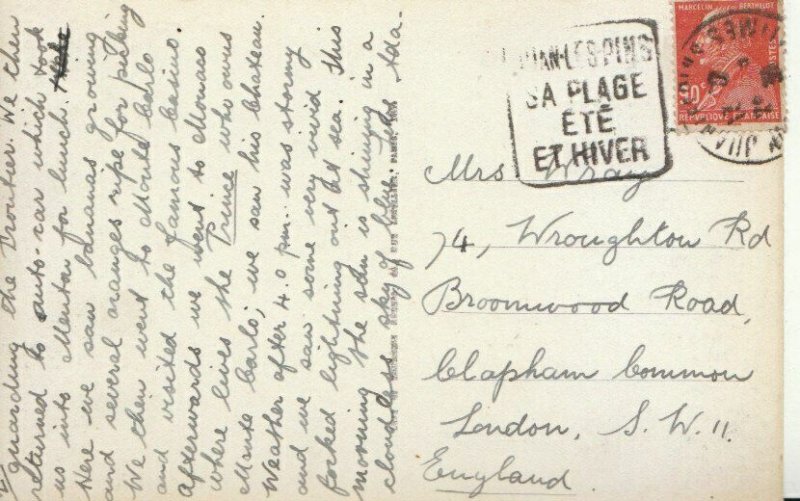 guarding the Frontier. We then
returned to auto-car which took
us into Menton for lunch.
Here we saw bananas growing
and several oranges ripe for picking
We then went to Monte Carlo
and visited the famous Casino.
Afterwards we went to Monaco
where lives the Prince who owns
Monte Carlo, we saw his Chateau.
Weather after 4.0 pm. was stormy
and we saw some very vivid
forked lightning out at sea. This
morning the sun is shining in a
cloudless sky of blue. Leds Ada-
JUAN-LES-PINS
SA PLAGE
ÉTÉ
ET HIVER
MARCELIN BERTHELOT
90
RÉPUBLIQUE FRANÇAISE
Mrs Wray
74, Wroughton Rd
Broomwood Road,
Clapham Common
London. S. W. 11.
England.